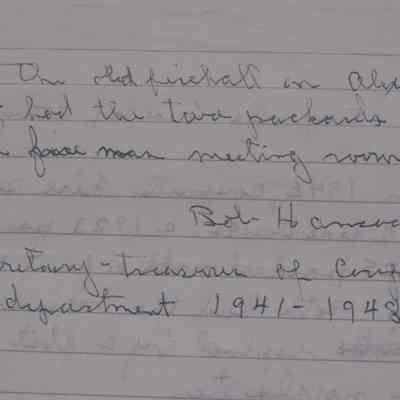 The old firehall on Alex
had the two packards
fire man meeting room
Bob Hanso
retary-treasurer of Cour
department 1941-1948